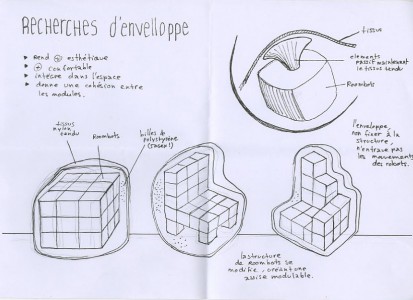 Recherches d'envelloppe
▶ Rend ⊕ esthétique
▶ ⊕ confortable
▶ intègre dans l'espace
▶ donne une cohésion entre
les modules.
tissu
elements
passif maintenant
le tissu tendu
Roombots
tissus
nylon
tendu
Roombots
billes de
polystyrène
l'enveloppe,
non fixer à la
structure,
n'entrave pas
les mouvements
des robots.
la structure
de roombots se
modifie, créant une
assise modulable.